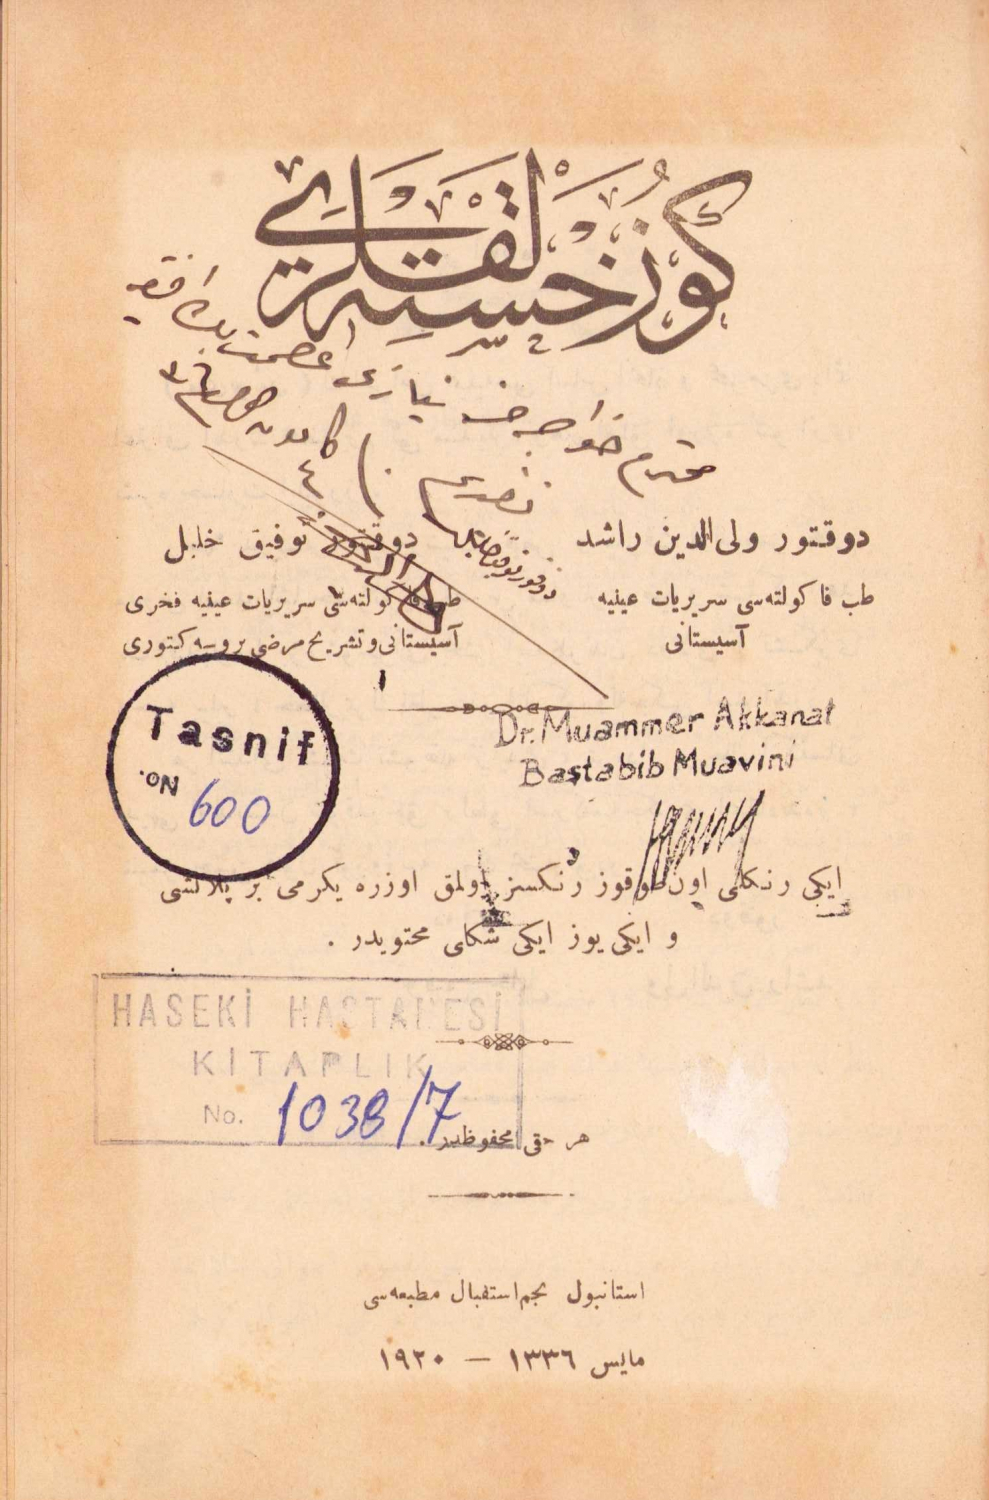 كوز خسته‌لقلری
محترم خواجه‌م نیازی عصمت بك افندی‌یه
تقدیم
دوقتور ولی الدین راشد
طب فاكولته‌سی سریریات عینیه
آسیستانی
دوقتور توفیق خلیل
طب فاكولته‌سی سریریات عینیه فخری
آسیستانی و تشریح مرضی پروسه‌كتوری
Dr. Muammer Akkanat
Bastabib Muavini
Tasnif
No.
600
ایكی رنكلی اون طوقوز رنكسز اولمق اوزره یكرمی بر پلانشی
و ایكی یوز ایكی شكلی محتویدر .
HASEKİ HASTANESİ
KİTAPLIK
No. 1038/7
هر حقی محفوظدر .
استانبول نجم استقبال مطبعه‌سی
مایس ١٣٣٦ — ١٩٢٠